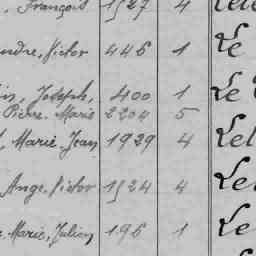 , François 1527 4
André, Victor 446 1 Le
Joseph, 400 1 Le
Pierre-Marie 2204 5
, Marie Jean 1929 4 Lel
Ange, Victor 1524 4 Le
Marie, Julien 196 1 Le